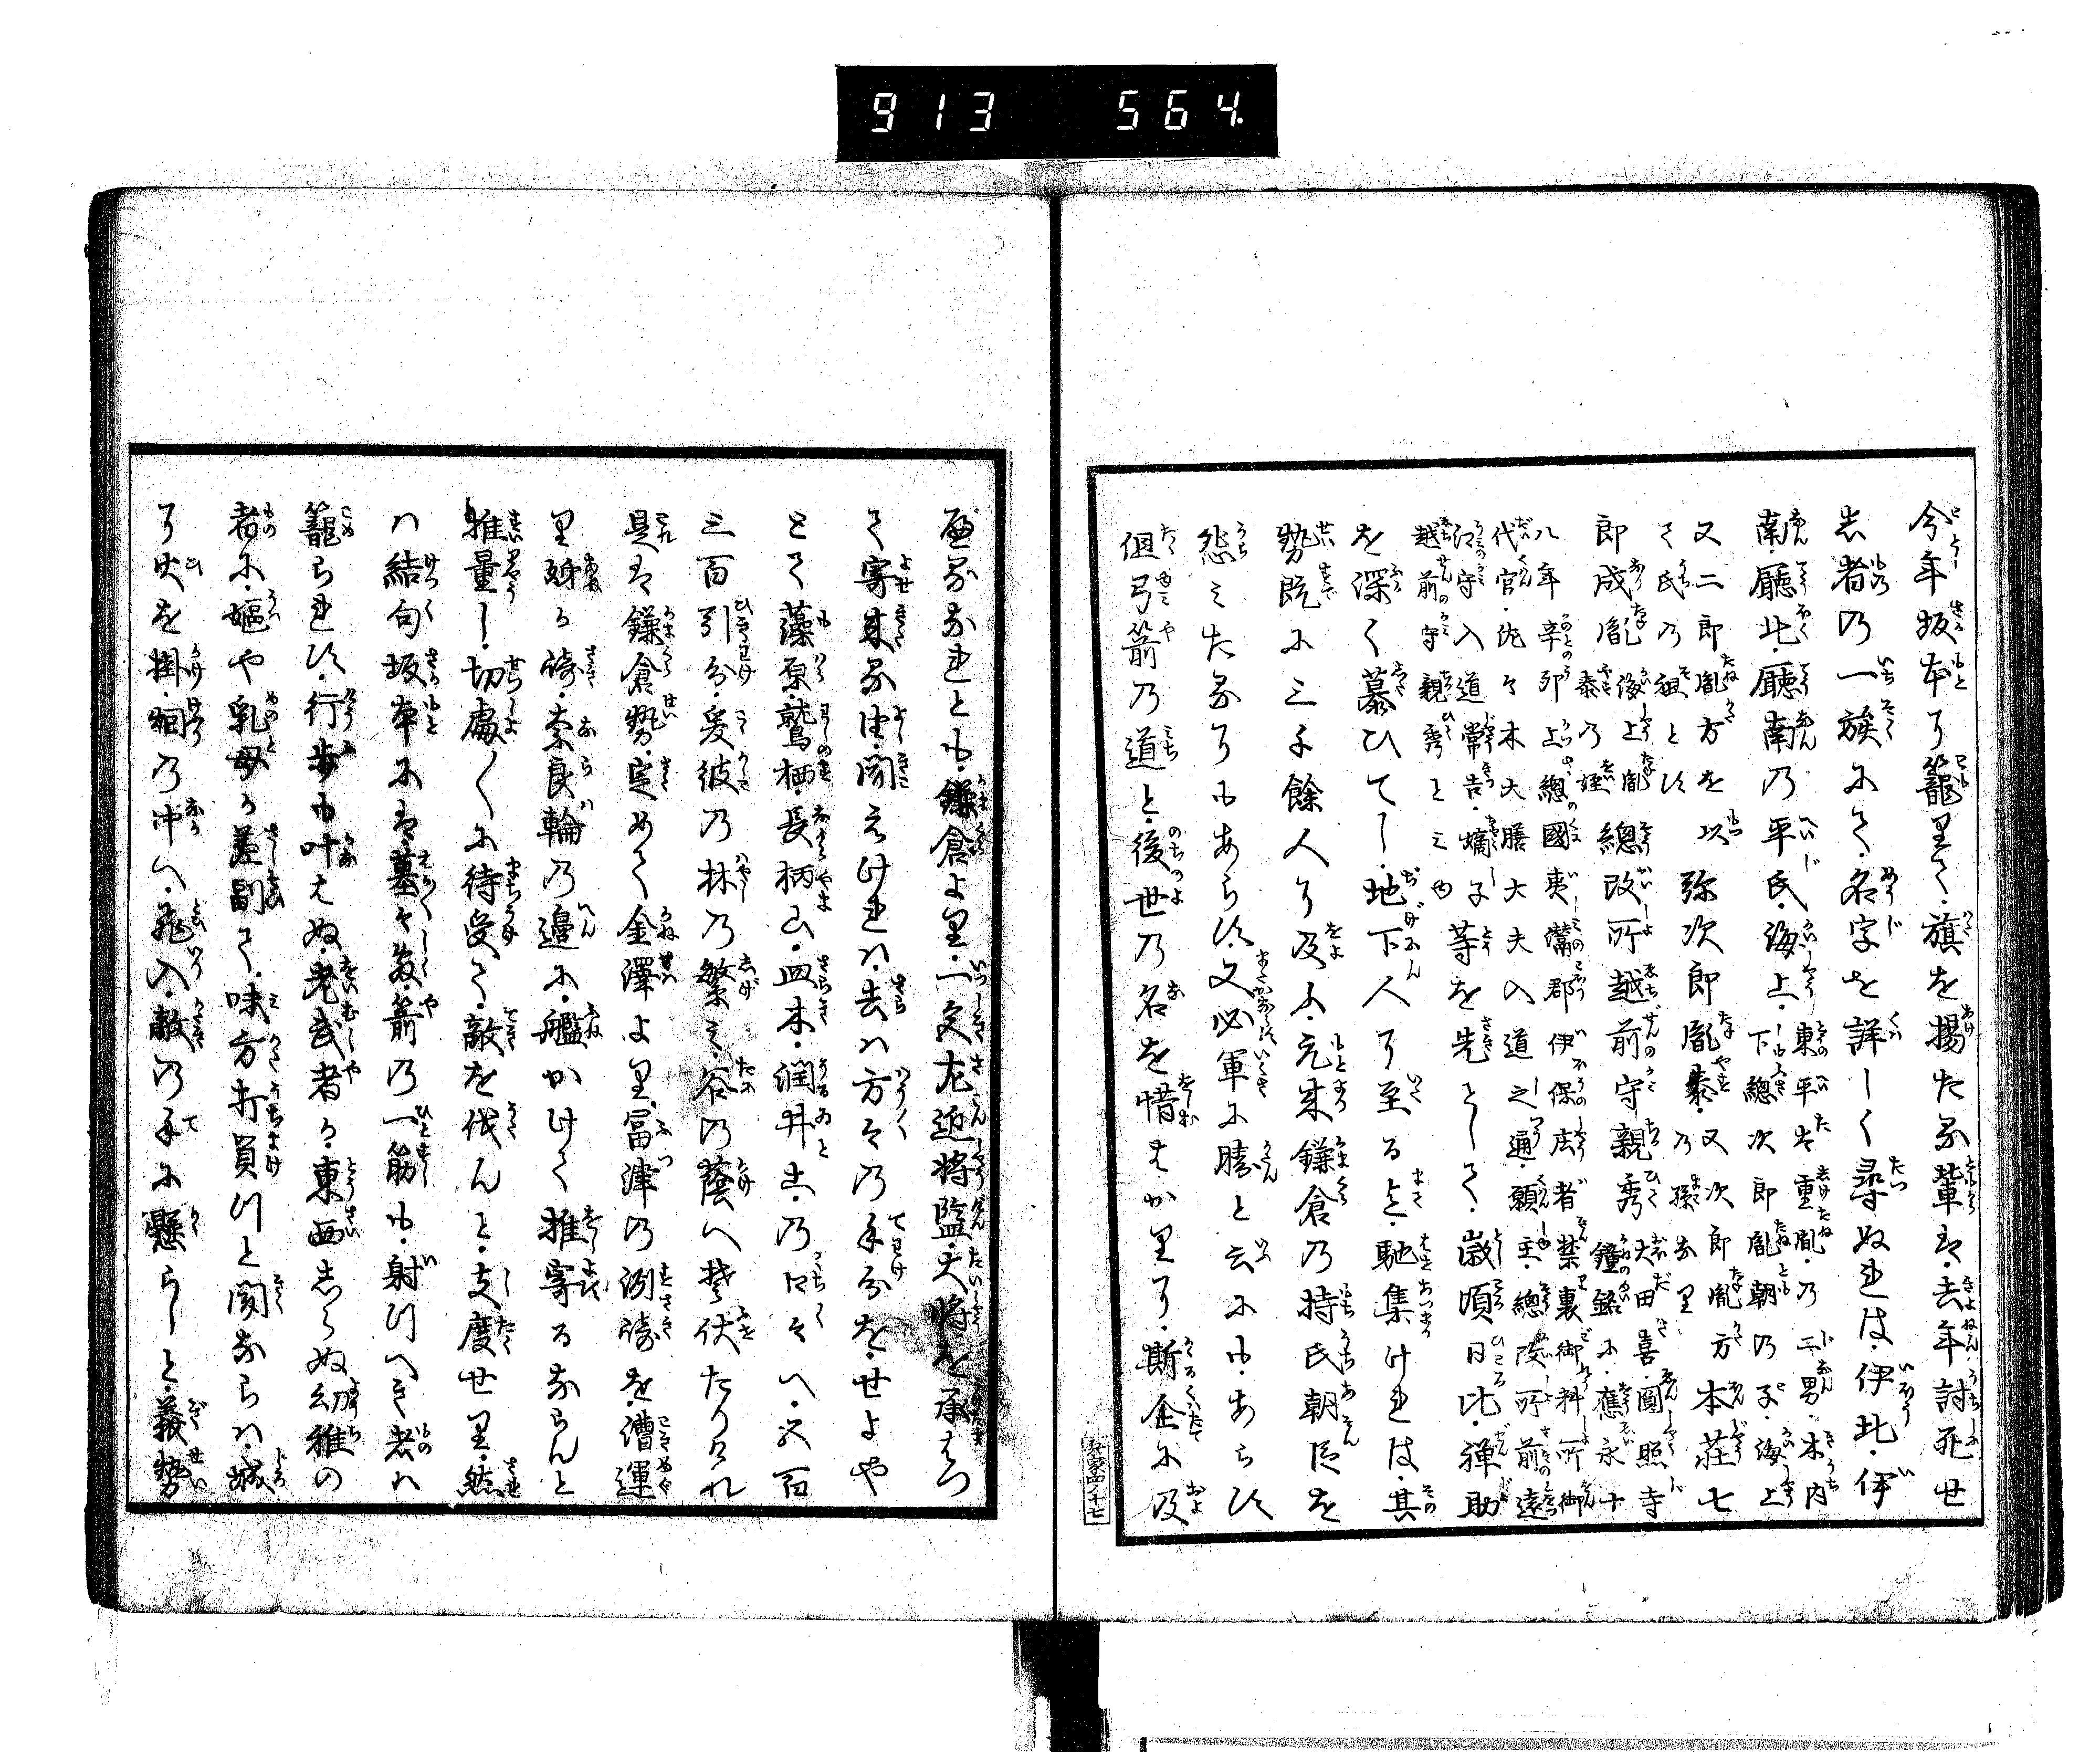 913 564.
今年坂本に籠里て、旗を揚たる輩は、去年討死せ
し者の一族にて、名字を詳しく尋ぬれば、伊北、伊
南、廳北、廳南の平氏、海上、東平太重胤の二男、木内
下總次郎胤朝の子、海上
又二郎胤方を以弥次郎胤泰、又次郎胤方、本荘七
て氏の祖とす の孫なり
郎成胤、海上胤 總改所越前守親秀
泰の姪 大田喜圓照寺
鐘銘に、應永十
八年辛卯上總國夷灊郡伊保庄者禁裏御料所御
代官佐々木大膳大夫入道之通願主總改所前遠
江守入道常吉嫡子
越前守親秀とみゆ
等を先として、歳頃日比、禅助
を深く慕ひてし、地下人に至るまで、馳集けれは、其
勢既に三千餘人に及ふ、元来鎌倉の持氏朝臣を
怨みたるにもあらす、又必軍に勝と云にも、あらす
但弓箭の道と、後世の名を惜はかりに、斯企に及
なれとも、鎌倉より、一色左近将監、大将を承はつ
て寄来る由、聞えけれハ、去ハ方々の手分を、せよや
とて藻原、鷲栖、長柄山、皿木、潤井土、の口々へ、五百
三百引分、爰彼の林の繁み、谷の蔭へ埜伏たりけれ
是は鎌倉勢、定めて金澤より、冨津の洌崎を、漕運
り姉か崎、奈良輪の邊に、艦かけて推寄るならんと
推量し、切處〱に待受て、敵を伐んと、支度せり、然
ハ結句坂本には、墓々敷箭の一筋も、射つへき者ハ
籠られす、行歩も叶はぬ、老武者か、東西しらぬ幼稚の
者に、嫗や乳母か差副て、味方打負ぬと聞ならハ、城
に火を掛、烟の中へ、飛入、敵の手に懸らしと、義勢